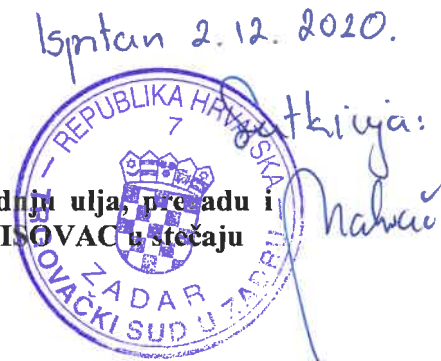 Ispitan 2. 12. 2020.
Sutkinja:
REPUBLIKA HRVATSKA
7
dnju ulja, preradu i
ISOVAC u stečaju
ZADAR
TRGOVAČKI SUD U ZADRU